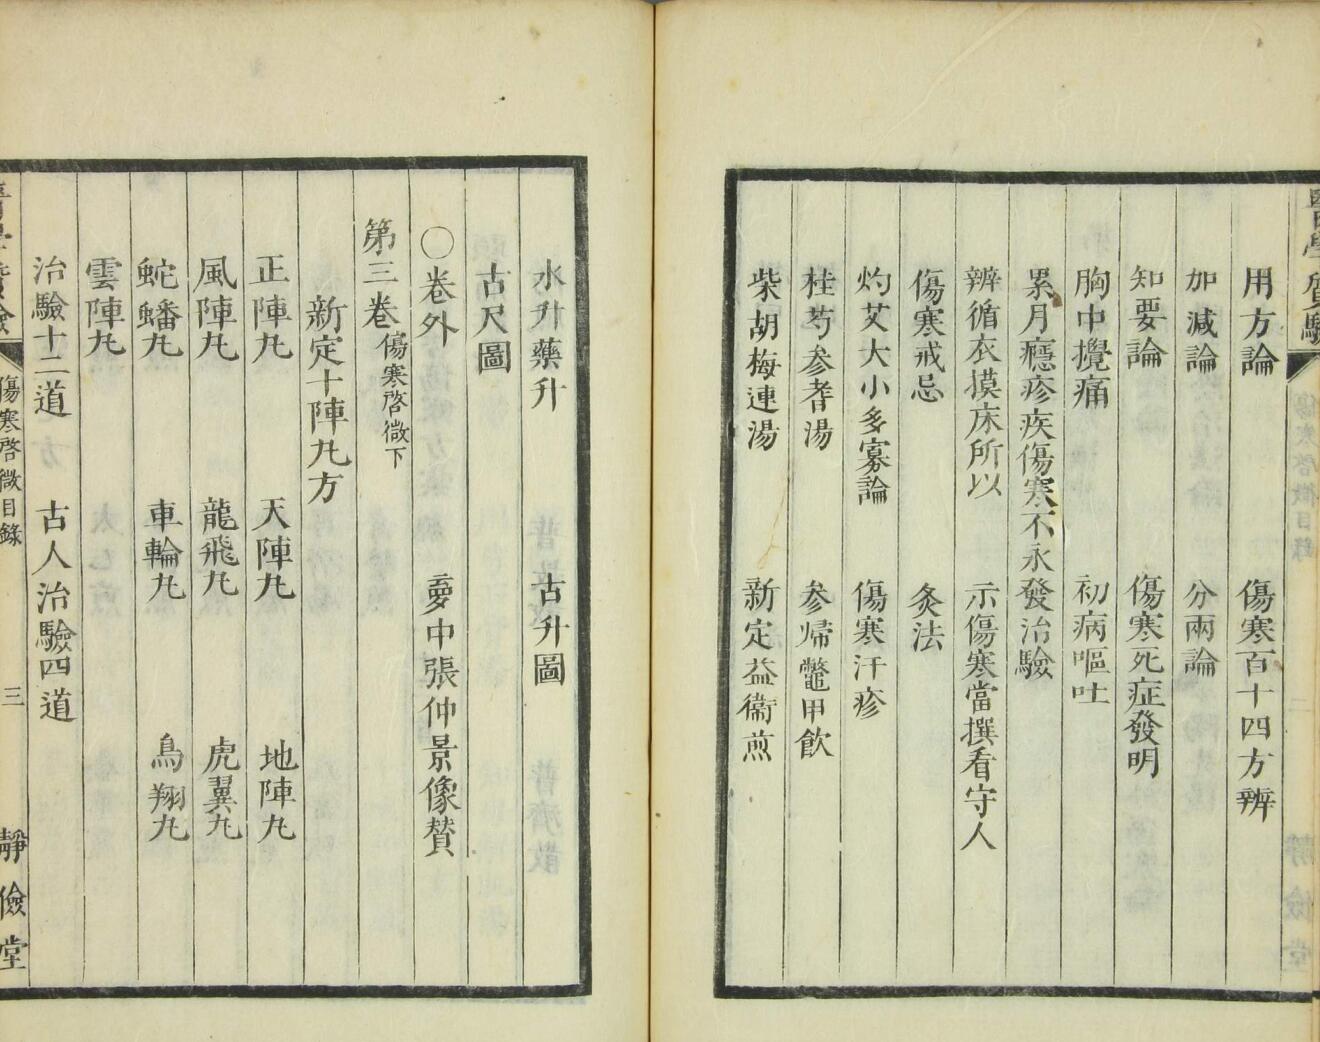 用方論　傷寒百十四方辨
加減論　分兩論
知要論　傷寒死症發明
胸中攪痛　初病嘔吐
累月癮疹疾傷寒不永發治驗
辨循衣摸床所以　示傷寒當撰看守人
傷寒戒忌　灸法
灼艾大小多寡論　傷寒汗疹
桂芍参耆湯　参歸鼈甲飲
柴胡梅連湯　新定益衞煎
水升藥升　古升圖
古尺圖
〇卷外　夢中張仲景像贊
第三卷傷寒啓微下
新定十陣九方
正陣九　天陣九　地陣九
風陣九　龍飛九　虎翼九
蛇蟠九　車輪九　鳥翔九
雲陣九
治驗十二道　古人治驗四道
傷寒啓微目錄　三　靜儉堂